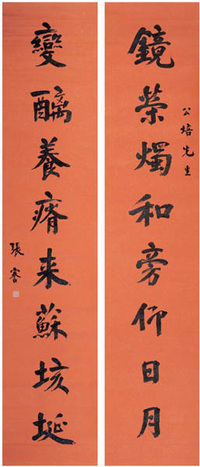 鏡榮燭和旁仰日月
公培先生
變醨養瘠来蘇垓埏
張謇